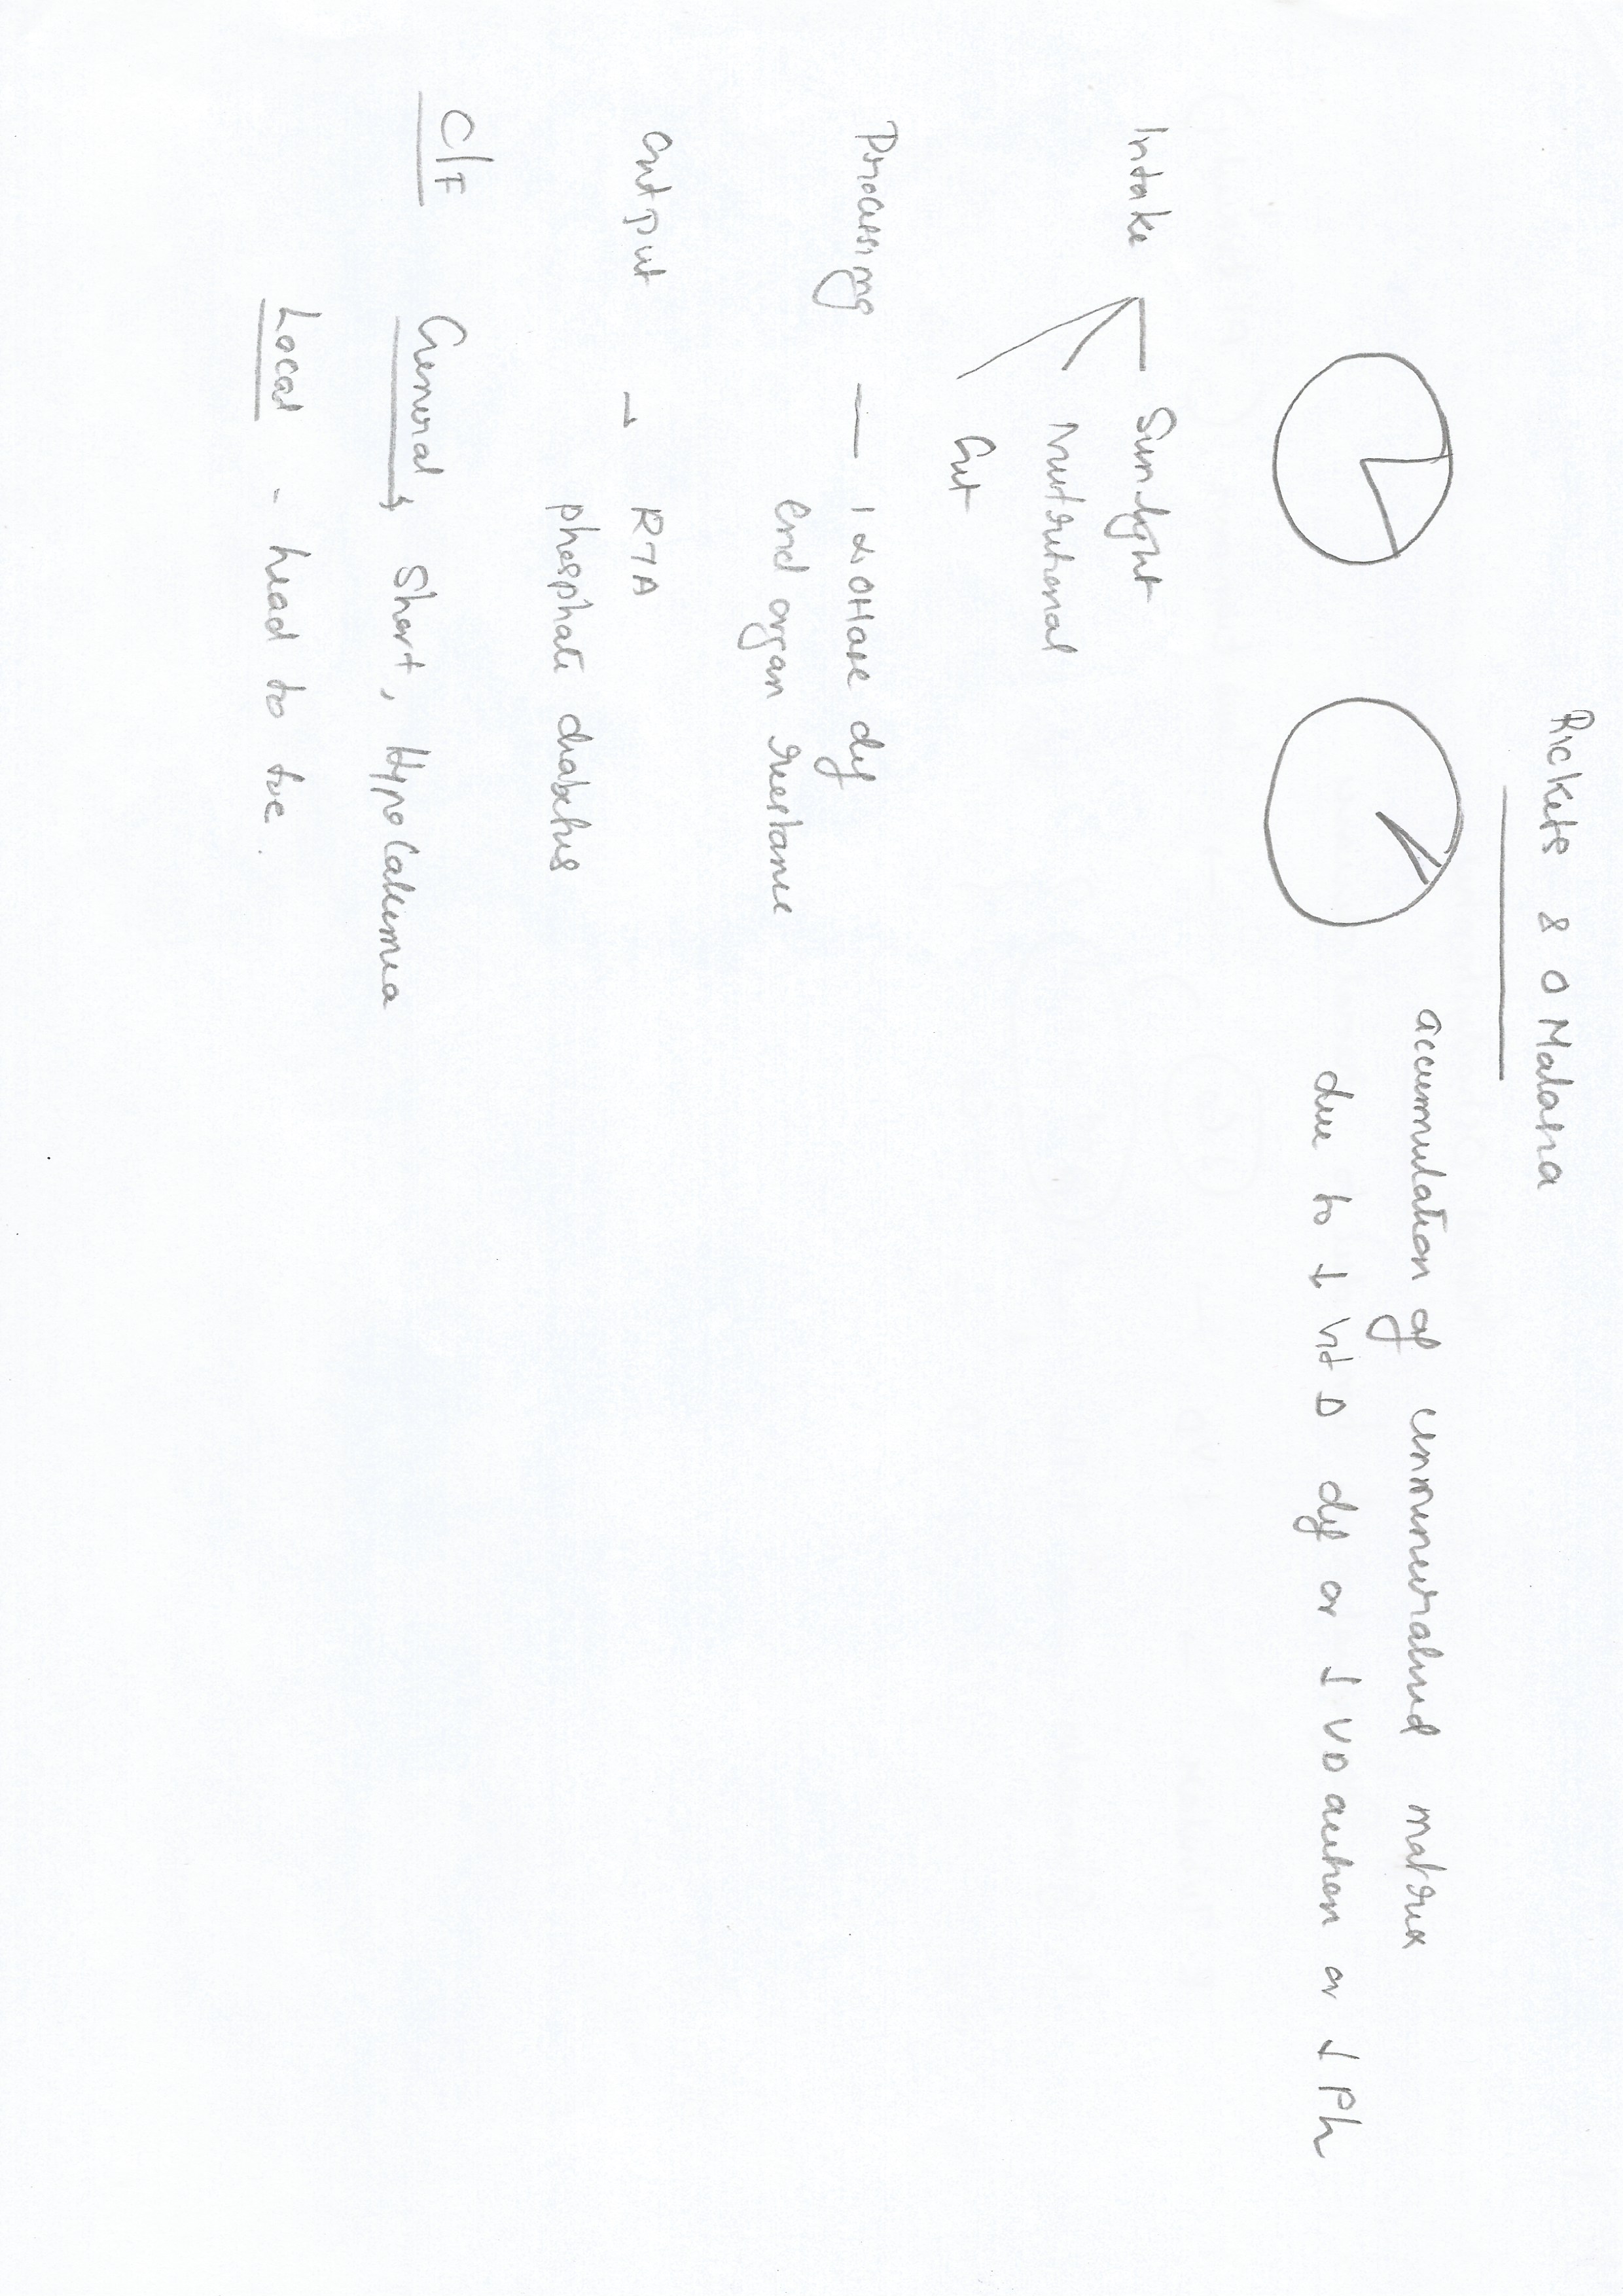 Rickets & O Malacia
accumulation of unmineralised matrix
due to ↓ vit D def or ↓ VD action or ↓ Ph
Intake
Sunlight
Nutritional
Gut
Processing — 1αOHase def
End organ resistance
Output → RTA
phosphate diabetes
C/F General → Short, Hypocalcemia
Local - head to toe